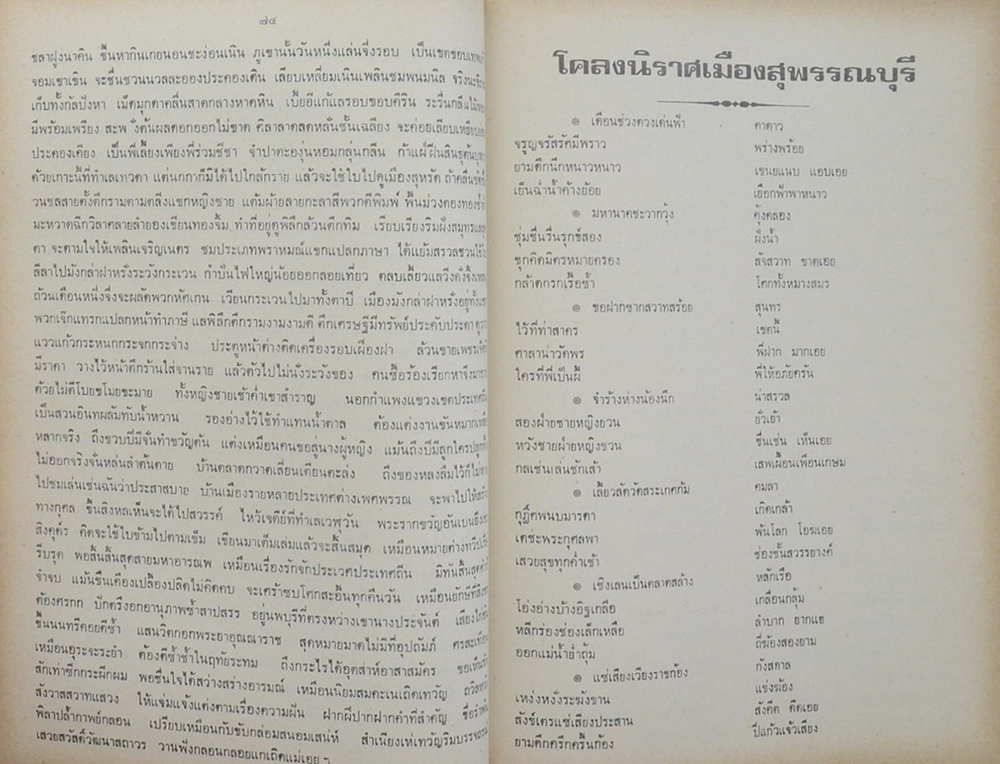 ๗๔
ชลาฝูงนาคิน ขึ้นหากินเกยนอนชะง่อนเนิน ภูเขานั้นวันหนึ่งแล่นจึ่งรอบ เป็นเขตขอบ
จอมเขาเขิน จะชื่นชวนนวลละอองประคองเดิน เลียบเหลี่ยมเนินเพลินชมพนมนิล จริงนะ
เก็บทั้งกัลปังหา เม็ดมุกดาคลื่นสาดกลางหาดหิน เบี้ยอีแก้แลรอบขอบคิริน ระรื่นกลิ่น
มีพร้อมเพรียง สะพรั่งต้นผลดอกออกไม่ขาด ศิลาลาดลดหลั่นชั้นเฉลียง จะค่อยเลียบ
ประคองเคียง เป็นพี่เลี้ยงเพียงพี่ร่วมชีวา จำปาดะองุ่นหอมกลุ่นกลิ่น กาแฝ่ฝิ่นสินธุ
ด้วยเกาะนี้ที่ทำเลเทวดา แต่นกกาก็มิได้ไปใกล้กราย แล้วจะใช้ใบไปดูเมืองสุหรัด
วนชลสายตั้งตึกรามตามตลิ่งแขกหญิงชาย แต้มฝ้ายลายกะลาสีพวกตีพิมพ์ พื้นม่วงตองทอง
มะหวาดฉีกวิลาศลายล้ายองเขียนทองจิ้ม ทำที่อยู่ดูพิลึกล้วนตึกทิม เรียบเรียงริมฝั่งสมุทร
ดา จะตามใจให้เพลินเจริญเนตร ชมประเภทพราหมณ์แขกแปลกภาษา ได้แย้มสรวลชวน
ลีลาไปมังกล่าฝาหรั่งระวังกระเวน กำปั่นไฟใหญ่น้อยออกลอยเที่ยว ตลบเลี้ยวแลวิ่ง
ถ้วนเดือนหนึ่งจึ่งจะผลัดพวกหัศเกน เวียนกระเวนไปมาทั้งตาปี เมืองมังกล่าฝาหรั่งอยู่
พวกเจ๊กแทรกแปลกหน้าทำภาษี แลพิลึกตึกรามงามงามดี ตึกเศรษฐีมีทรัพย์ประดับประดา
แววแก้วกระหนกกระจกกระจ่าง ประตูหน้าต่างติดเครื่องรอบเฝืองฝา ล้วนขายเพชร
มีราคา วางไว้หน้าตึกร้านใส่จานราย แล้วตัวไปไม่นั่งระวังของ คนซื้อร้องเรียกหาจึงมา
ด้วยไม่มีโบยขโมยขะมาย ทั้งหญิงชายเช้าค่ำเขาสำราญ นอกกำแพงแขวงเขตประเทศ
เป็นสวนอินทผลัมทับน้ำหวาน รองอ่างไว้ใช้ทำแทนน้ำตาล ต้องแต่งงานขันหมาก
หลากจริง ถึงขวบปีมีจั่นทำขวัญต้น แต่งเหมือนคนขอสู่นางผู้หญิง แม้นถึงปีมีลูกใคร
ไม่ออกจริงจั่นหล่นลำต้นตาย บ้านตลาดกวาดเลี่ยนเตียนตะล่ง ถึงของหลงลืมไว้ก็ไม่
ไปชมเล่นเช่นฉันว่าประสาสบาย บ้านเมืองรายหลายประเทศต่างเพศพรรณ จะพาไปให้
ทางกุศล ขึ้นสิงหลเห็นจะได้ไปสวรรค์ ไหว้เจดีย์ที่ทำเลเวฬุวัน พระรากขวัญอันเบน
สิงคุตร์ คิดจะใช้ใบข้ามไปตามเข็ม เขียนมาเต็มเล่มแล้วจะสิ้นสมุด เหมือนหมายต่างทวีป
รีบรุด พอสิ้นสิ้นสุดสายมหาอารณพ เหมือนเรื่องรักจักประเวศประเทศถิ่น มิทันสิ้นสุด
จำจบ แม้นขืนเคืองเปลื้องปลิดไม่คิดคบ จะเศร้าซบโศกสะอื้นทุกคืนวัน เหมือนยักษ์
ต้องศรกก ปักตรึงอกอานุภาพซ้ำสาปสรร อยู่นพบุรีที่ตรงหว่างเขานางประจันต์ เสียงไก่
ขึ้นนนทรีคอยตีซ้ำ แสนวิตกอกพระยาอุณณาราช สุดหมายมาดไม่มีที่อุปถัมภ์
เหมือนอุระจะระยำ ต้องตีซ้ำช้ำในฤทัยระทม ถึงกระไรได้อุตส่าห์อาสาสมัคร
สักเท่าซีกกระผีกผม พอชื่นใจได้สว่างสร่างอารมณ์ เหมือนนิยมสมคะเนเถิดเทวัญ
สังวาสสวาทแสวง ให้แจ่มแจ้งแต่งตามเรื่องความฝัน ฝากฝีปากฝากคำที่สำคัญ
พิลาปล้ำกาพย์กลอน เปรียบเหมือนกับขับกล่อมสนอมเสน่ห์ สำเนียงเห่เทวัญริม
เสวยสวัสดิ์วัฒนาสถาวร วานฟังกลอนกลอยแกเถิดแม่เอยฯ
โคลงนิราศเมืองสุพรรณบุรี
๏ เดือนช่วงดวงเด่นฟ้า ดาดาว
จรูญจรัสรัศมีพราว พร่างพร้อย
ยามดึกนึกหนาวหนาว เขนยแนบ แอบเอย
เย็นฉ่ำน้ำค้างย้อย เยือกฟ้าพาหนาว
๏ มหานาคฉะวากวุ้ง คุ้งคลอง
ชุ่มชื่นรื่นรุกข์สอง ฝั่งน้ำ
ขุกคิดมิตรหมายครอง สัจสวาท ขาดเอย
กล้าตกรกเรื้อซ้ำ โศกทั้งหมางสมร
๏ ขอฝากซากสวาทสร้อย สุนทร
ไว้ที่ท่าสาคร เขตนี้
ศาลาน่าวัดพร พี่ฝาก มากเอย
ใครที่พี่เป็นผี้ พี่ให้อภัยครัน
๏ จำร้างห่างน้องนึก น่าสรวล
สองฝ่ายชายหญิงยวน ยั่วเย้า
หวังชายฝ่ายหญิงชวน ชื่นเช่น เห็นเอย
กลเช่นเล่นซักเส้า เสพเผื้อนเพื่อนเกษม
๏ เลี้ยวลัดวัดสระเกศก้ม คมลา
กุฎิ์ศพนบมารดา เกิดเกล้า
เดชะพระกุศลพา พ้นโลก โอฆเอย
เสวยสุขทุกค่ำเช้า ช่องชั้นสวรรยางค์
๏ เชิงเลนเป็นตลาดสล้าง หลักเรือ
โอ่งอ่างบ้างอิฐเกลือ เกลื่อนกลุ้ม
หลีกร่องช่องเล็กเหลือ ลำบาก ยากแฮ
ออกแม่น้ำย่ำถุ้ม ถี่ฆ้องสองยาม
๏ แซ่เสียงเวียงราชก้อง กังสดาล
เหง่งหงั่งระฆังขาน แข่งฆ้อง
สังข์แตรแซ่เสียงประสาน สังคีต ดีดเอย
ยามดึกครึกครื้นก้อง ปี่แก้วแจ้วเสียง